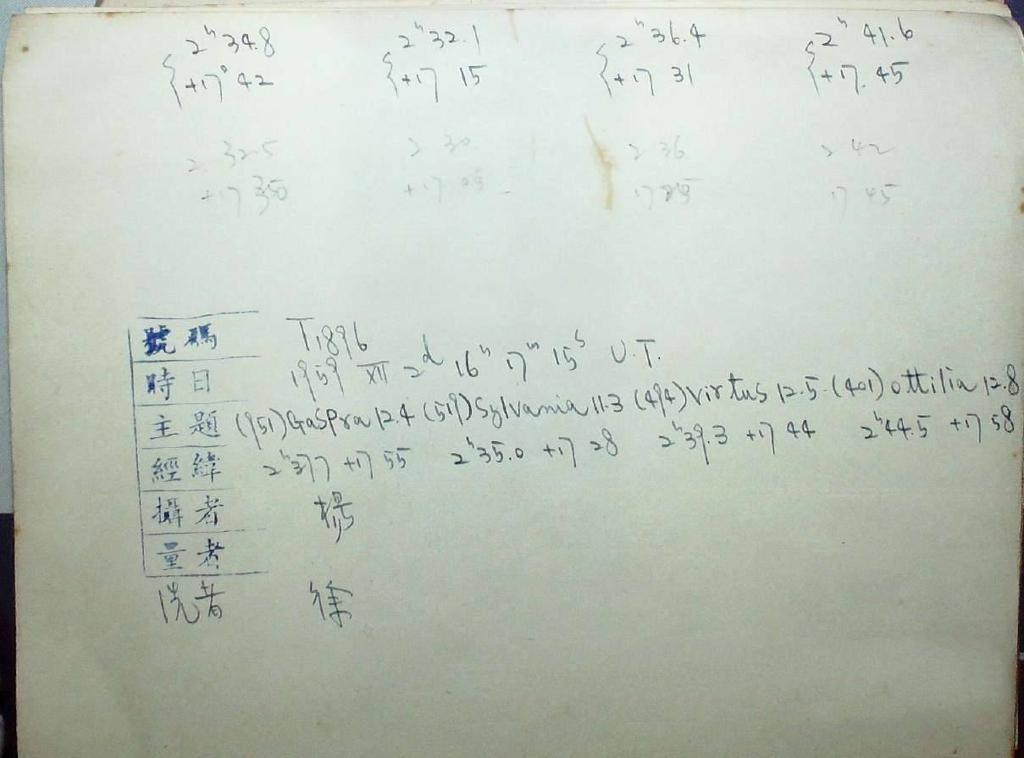 2ʰ34.8 2ʰ32.1 2ʰ36.4 2ʰ41.6
+17°42 +17 15 +17 31 +17.45
2 32.5 2 30 2 36 2 42
+17 350 +17 17 45
號碼 T1896
時日 1959 XII 2ᵈ 16ʰ 17ᵐ 15ˢ U.T.
主題 (951)Gaspra 12.4 (519)Sylvania 11.3 (494)Virtus 12.5 (401)Ottilia 12.8
經緯 2ʰ377 +17 55 2ʰ35.0 +17 28 2ʰ39.3 +17 44 2ʰ44.5 +17 58
攝者 楊
量者
洗者 徐